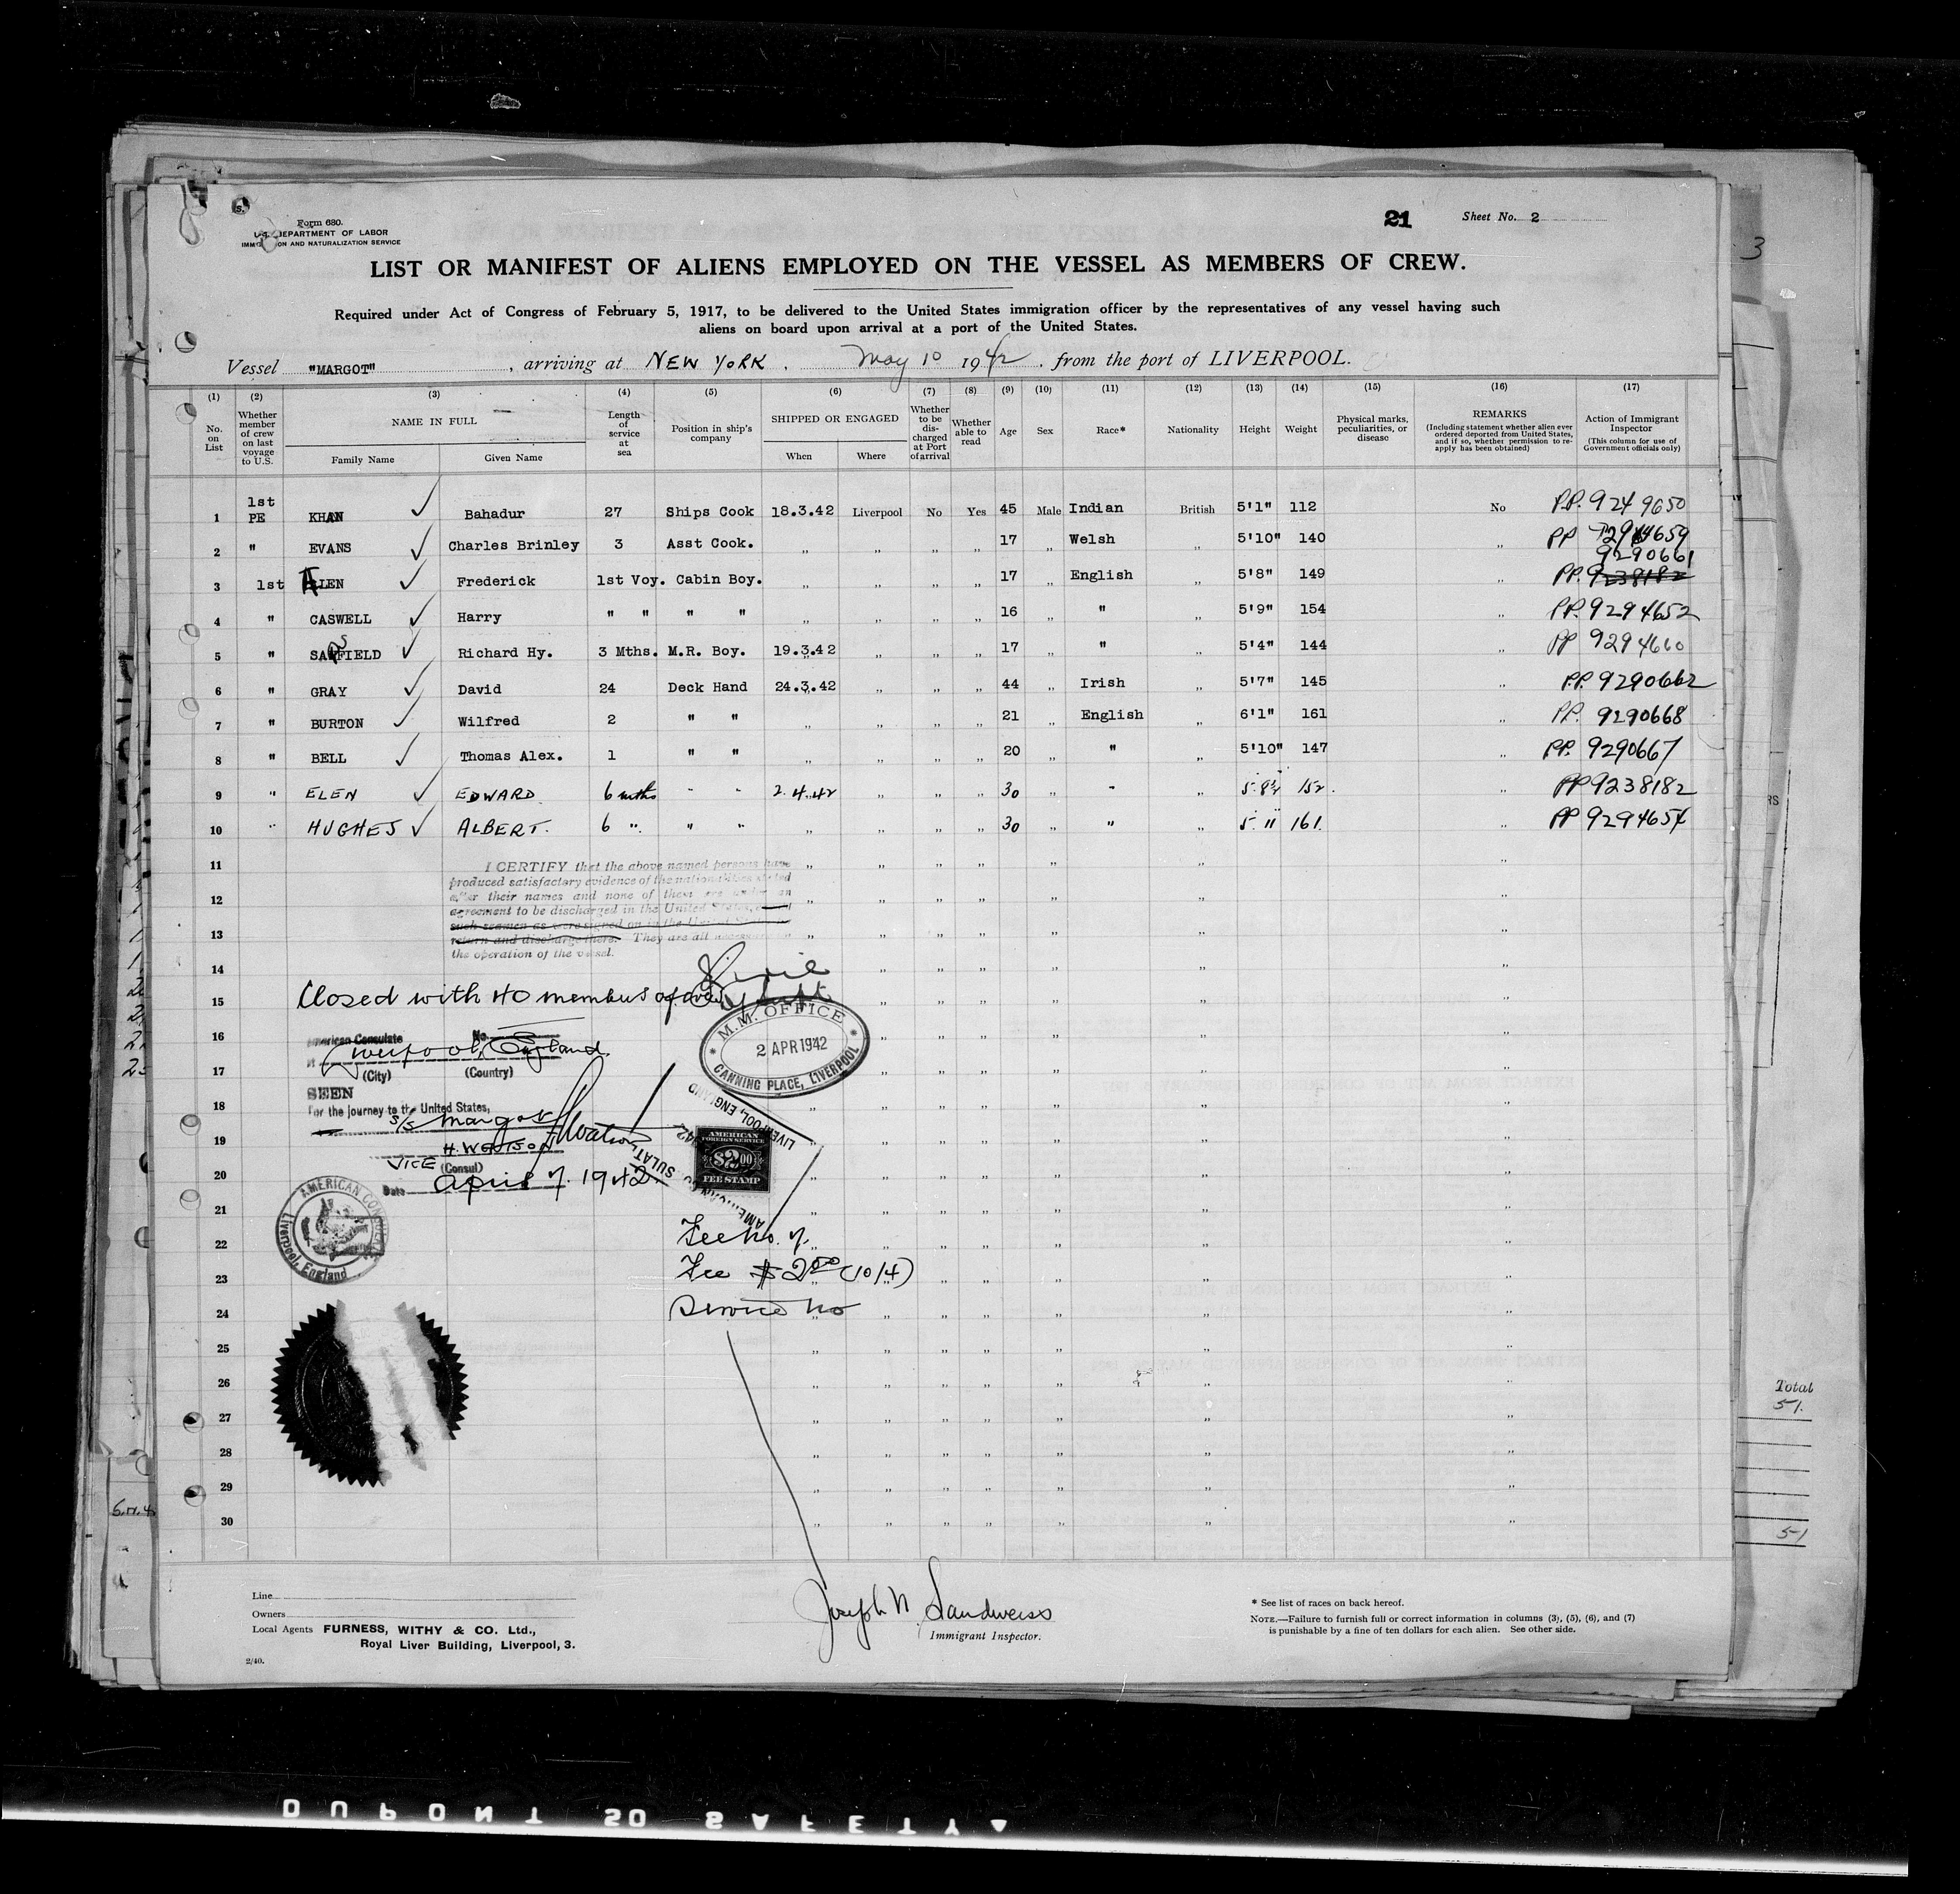 Form 680.
U.S. DEPARTMENT OF LABOR
IMMIGRATION AND NATURALIZATION SERVICE
21
Sheet No. 2
LIST OR MANIFEST OF ALIENS EMPLOYED ON THE VESSEL AS MEMBERS OF CREW.
Required under Act of Congress of February 5, 1917, to be delivered to the United States immigration officer by the representatives of any vessel having such
aliens on board upon arrival at a port of the United States.
Vessel "MARGOT", arriving at NEW YORK, May 10 1942, from the port of LIVERPOOL.
(1) (2) (3) (4) (5) (6) (7) (8) (9) (10) (11) (12) (13) (14) (15) (16) (17)
No. on List
Whether member of crew on last voyage to U.S.
NAME IN FULL
Family Name
Given Name
Length of service at sea
Position in ship's company
SHIPPED OR ENGAGED
When
Where
Whether to be discharged at Port of arrival
Whether able to read
Age
Sex
Race*
Nationality
Height
Weight
Physical marks, peculiarities, or disease
REMARKS
(Including statement whether alien ever ordered deported from United States, and if so, whether permission to re-apply has been obtained)
Action of Immigrant Inspector
(This column for use of Government officials only)
1 1st PE KHAN Bahadur 27 Ships Cook 18.3.42 Liverpool No Yes 45 Male Indian British 5'1" 112 No P.P. 9249650
2 " EVANS Charles Brinley 3 Asst Cook. " " " " 17 " Welsh " 5'10" 140 " PP
3 1st Frederick 1st Voy. Cabin Boy. " " " " 17 " English " 5'8" 149 " PP. 9290661 9238182
4 " CASWELL Harry " " " " " " " " 16 " " " 5'9" 154 " P.P. 9294652
5 " Richard Hy. 3 Mths. M.R. Boy. 19.3.42 " " " 17 " " " 5'4" 144 " PP 9294660
6 " GRAY David 24 Deck Hand 24.3.42 " " " 44 " Irish " 5'7" 145 " P.P. 9290662
7 " BURTON Wilfred 2 " " " " " " 21 " English " 6'1" 161 " PP. 9290668
8 " BELL Thomas Alex. 1 " " " " " " 20 " " " 5'10" 147 " P.P. 9290667
9 " ELEN EDWARD 6 mths " " 2.4.42 " " " 30 " " " 5.8½ 152. " PP 9238182
10 " HUGHES ALBERT. 6 " " " " " " " 30 " " " 5.11 161. " PP 9294654
11
12
13
14
15
16
17
18
19
20
21
22
23
24
25
26
27
28
29
30
I CERTIFY that the above named persons have
produced satisfactory evidence of the nationalities stated
after their names and none of them are under an
agreement to be discharged in the United States,
such seamen as were signed on in the United States
return and discharge there. They are all necessary
the operation of the vessel.
Closed with 40 members of crew
M.M. OFFICE
2 APR 1942
CANNING PLACE, LIVERPOOL
American Consulate No.
Liverpool, England
(City) (Country)
SEEN
For the journey to the United States,
s/s Margot
H. WATSON
VICE (Consul)
Date April 7. 1942
AMERICAN CONSULATE
Liverpool, England
LIVERPOOL, ENGLAND
AMERICAN
FOREIGN SERVICE
$2.00
FEE STAMP
Fee No. 7
Fee $2.00 (10/4)
Service No
Joseph N. Landweiss
Immigrant Inspector.
Line
Owners
Local Agents FURNESS, WITHY & CO. Ltd.,
Royal Liver Building, Liverpool, 3.
2/40.
* See list of races on back hereof.
NOTE.—Failure to furnish full or correct information in columns (3), (5), (6), and (7)
is punishable by a fine of ten dollars for each alien. See other side.
3
Total
51.
51
DUPONT SO SAFETY